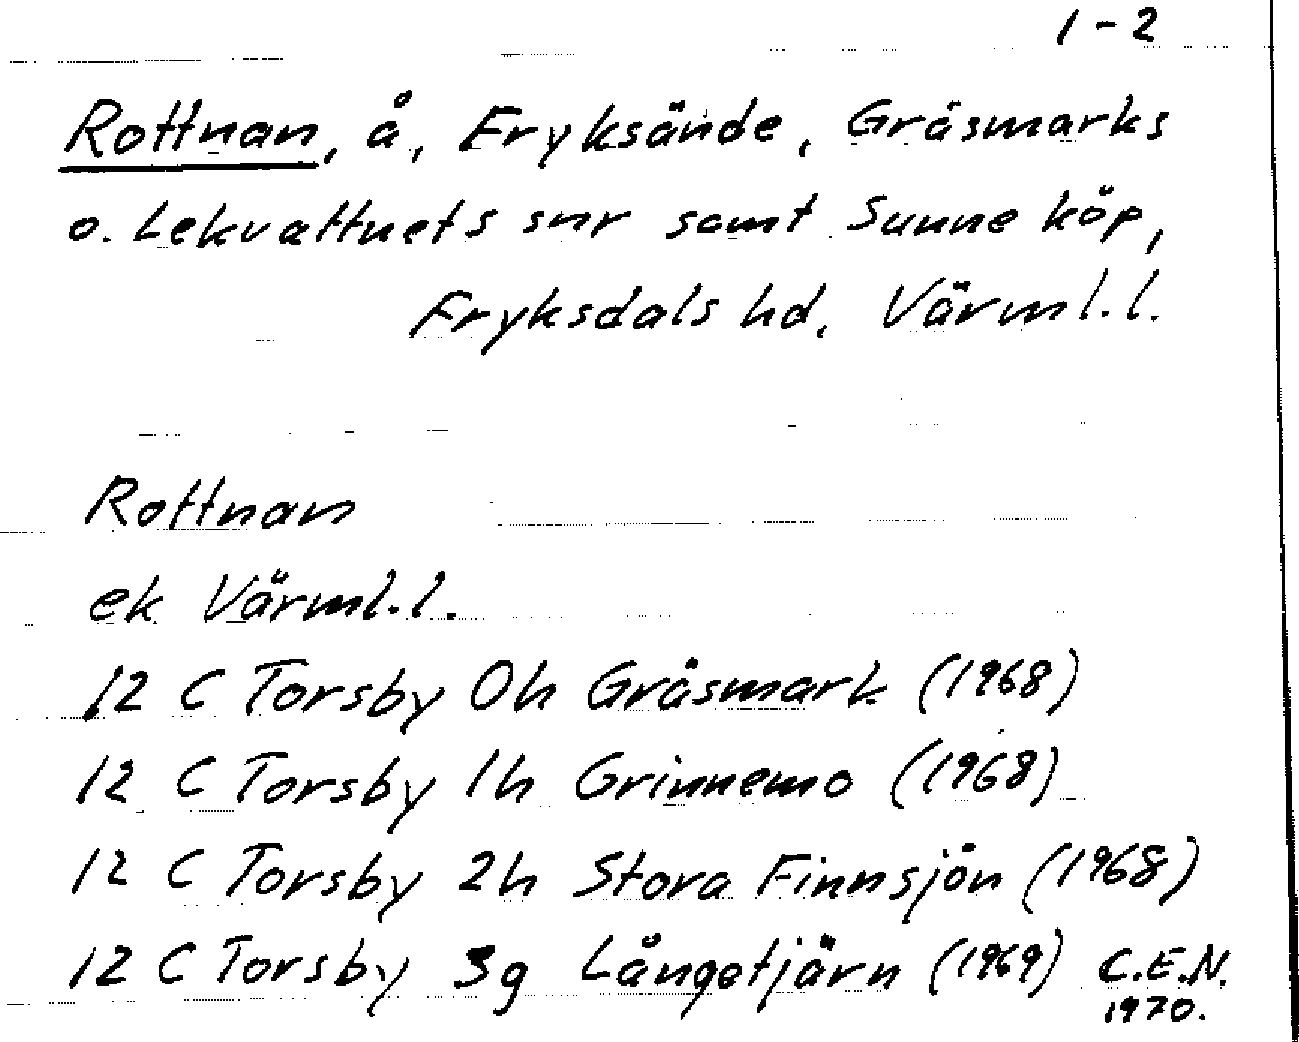 1-2
Rottnan, å, Fryksände, Gräsmarks
o. Lekvattnets snr samt Sunne köp,
Fryksdals hd, Värml.l.
Rottnan
ek Värml.l.
12 C Torsby 0h Gräsmark (1968)
12 C Torsby 1h Grinnemo (1968)
12 C Torsby 2h Stora Finnsjön (1968)
12 C Torsby 3g Långetjärn (1969) C.E.N.
1970.